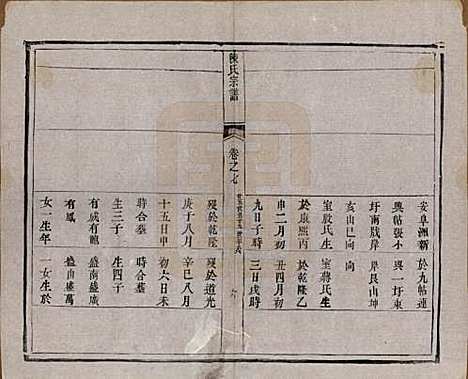 安阜洲新　於九帖連
興帖張小　興一圩東
圩南戧岸　岸艮山坤
亥山已向　向
室殷氏生　室蔣氏生
於康熙丙　於乾隆乙
申二月初　丑四月初
九日子時　三日戌時
陳氏宗譜
卷之七
歿於乾隆　歿於道光
庚子八月　辛巳八月
十五日申　初六日未
時合墓　時合墓
生三子　生四子
有威有館　盛南盛廣
有鳳　盛由盛萬
女一生年　一女生於